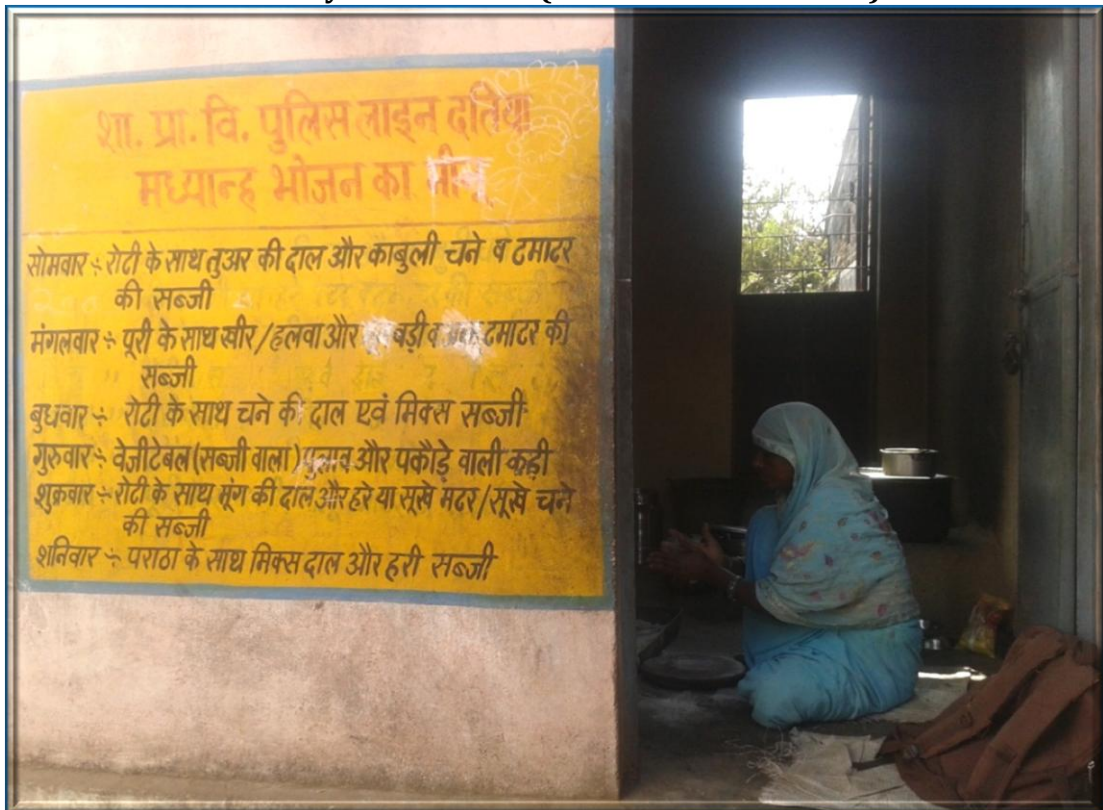 शा. प्रा. वि. पुलिस लाइन दतिया
मध्यान्ह भोजन का मीनू
सोमवार ÷ रोटी के साथ तुअर की दाल और काबुली चने व टमाटर
की सब्जी
मंगलवार ÷ पूरी के साथ खीर/हलवा और बड़ी व टमाटर की
सब्जी
बुधवार ÷ रोटी के साथ चने की दाल एवं मिक्स सब्जी
गुरुवार ÷ वेजीटेबल (सब्जी वाला) पुलाव और पकौड़े वाली कढ़ी
शुक्रवार ÷ रोटी के साथ मूंग की दाल और हरे या सूखे मटर/सूखे चने
की सब्जी
शनिवार ÷ पराठा के साथ मिक्स दाल और हरी सब्जी